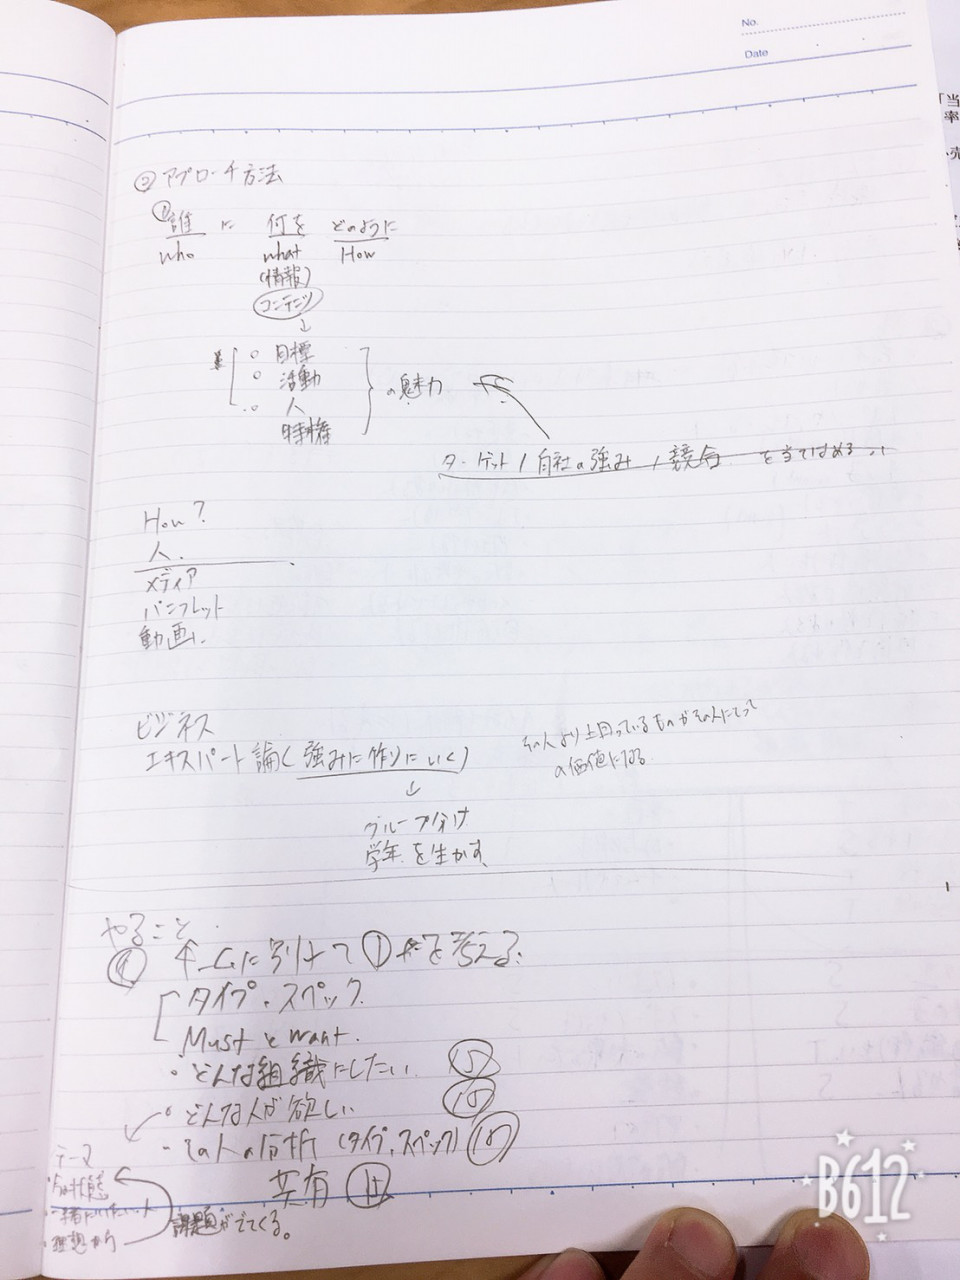 No.
Date
② アプローチ方法
① 誰 に 何を どのように
who what How
(情報)
コンテンツ
↓
○ 目標
○ 活動
○ 人
特権
の魅力
ターゲット / 自社の強み / 競合 を当てはめる
How?
人
メディア
パンフレット
動画
ビジネス
エキスパート論(強みに作りにいく)
その人より上回っているものがその人にとって
の価値になる
↓
グループ分け
学年を生かす
やること
チームに別れて① を考える
タイプ・スペック
Must と want
・どんな組織にしたい ⑤
・どんな人が欲しい ⑩
・その人の分析 (タイプ、スペック)
共有
テーマ
・理想から
課題がでてくる。
「当
率
B612